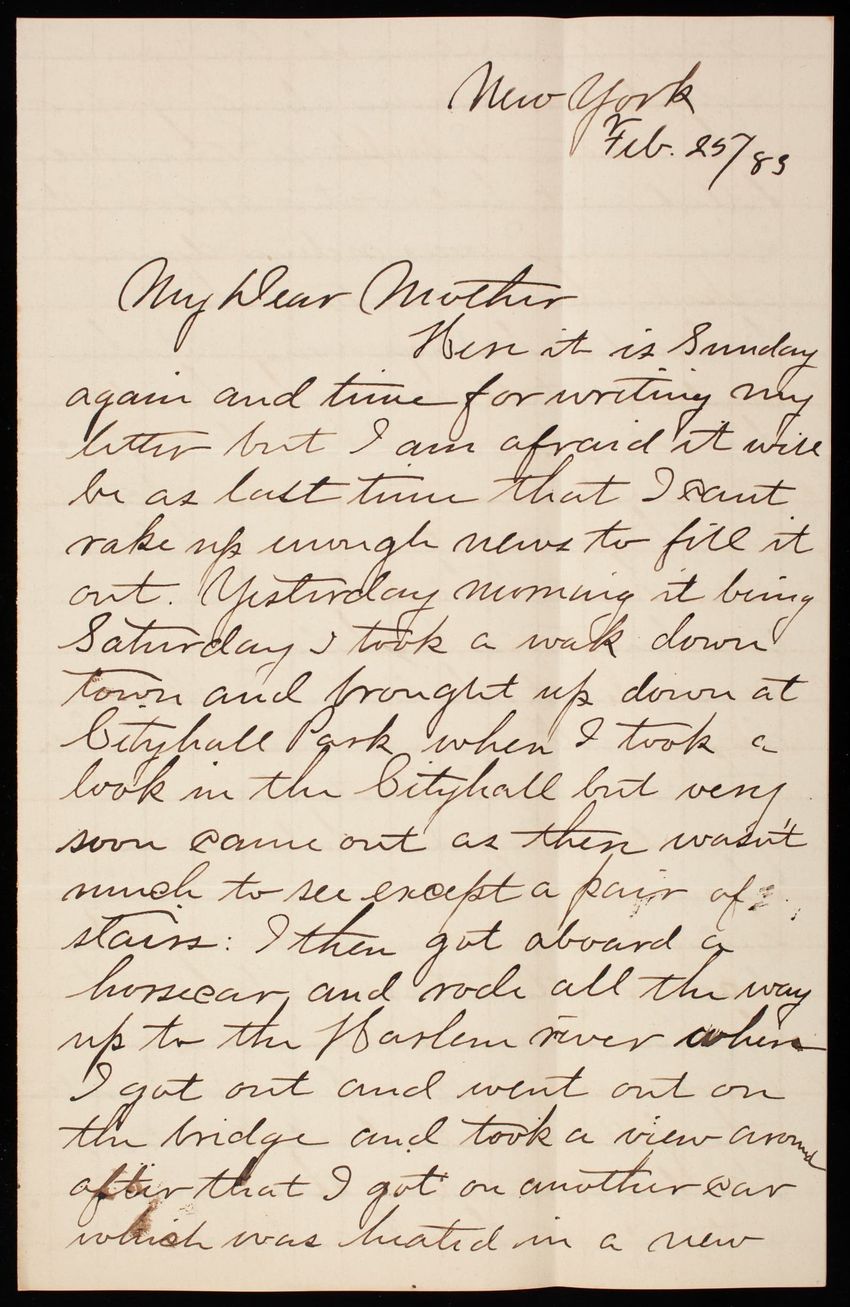 New York
Feb. 25/83
My Dear Mother
Here it is Sunday
again and time for writing my
letter but I am afraid it will
be as last time that I cant
rake up enough news to fill it
out. Yesterday morning it being
Saturday I took a walk down
town and brought up down at
Cityhall Park when I took a
look in the Cityhall but very
soon came out as there wasn't
much to see except a pair of
stairs: I then got aboard a
horsecar, and rode all the way
up to the Harlem river where
I got out and went out on
the bridge and took a view around
after that I got on another car
which was heated in a new